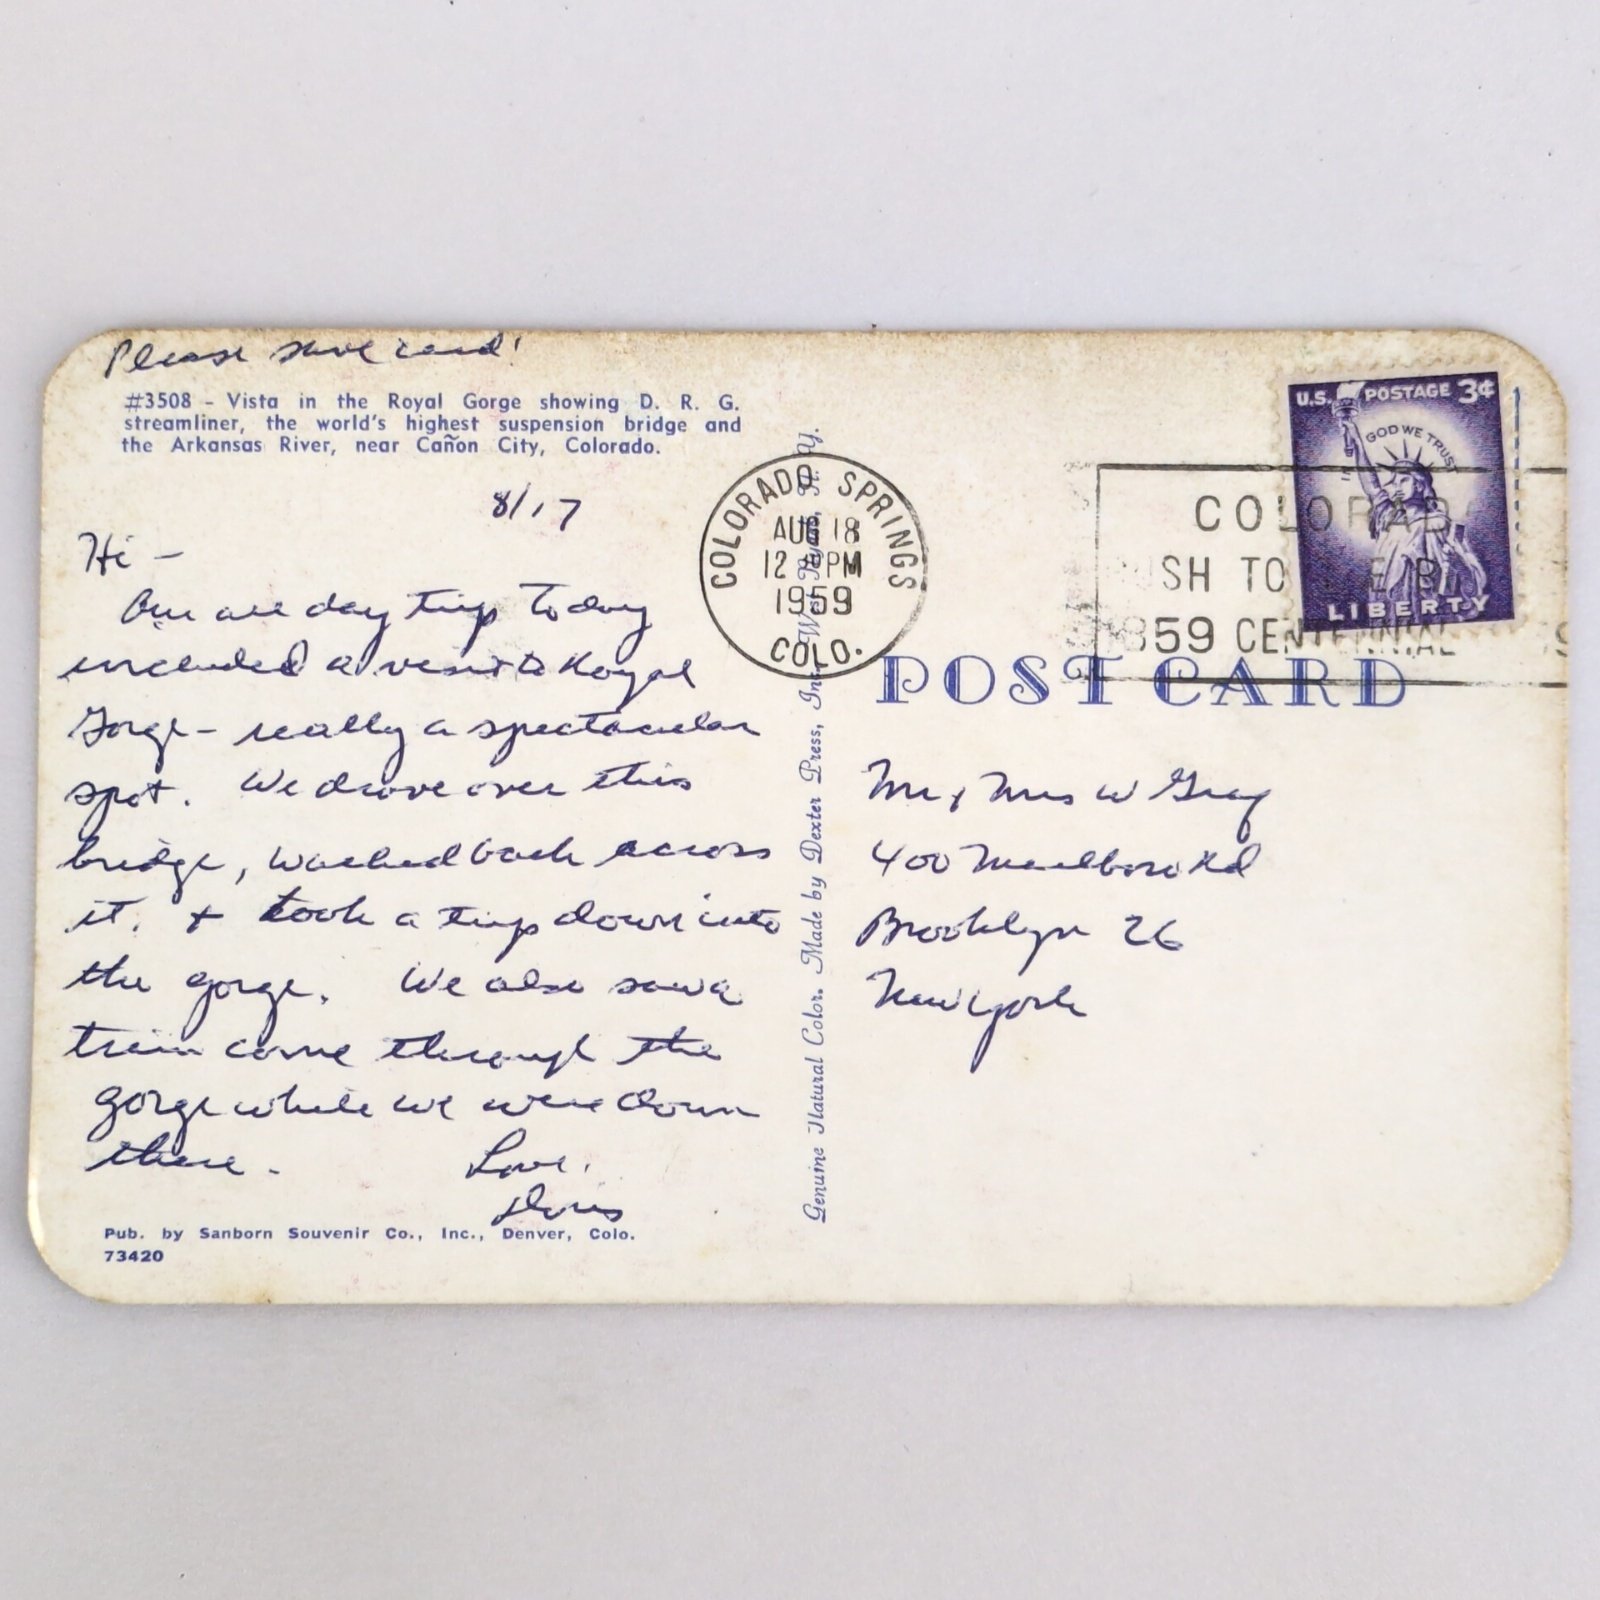 Please save card!
#3508 - Vista in the Royal Gorge showing D. R. G.
streamliner, the world's highest suspension bridge and
the Arkansas River, near Cañon City, Colorado.
8/17
Hi -
Our all day trip today
included a visit to Royal
Gorge - really a spectacular
spot. We drove over this
bridge, walked back across
it. + took a trip down into
the gorge. We also saw a
train come through the
gorge while we were down
there. Love,
Doris
Pub. by Sanborn Souvenir Co., Inc., Denver, Colo.
73420
Genuine Natural Color. Made by Dexter Press, Inc. West Nyack, N. Y.
COLORADO SPRINGS
AUG 18
12 PM
1959
COLO.
U.S. POSTAGE 3¢
IN GOD WE TRUST
LIBERTY
COLORAD
SH TO
859 CENTENNIAL
POST CARD
Mr + Mrs W Gray
400 Marlboro Rd
Brooklyn 26
New York